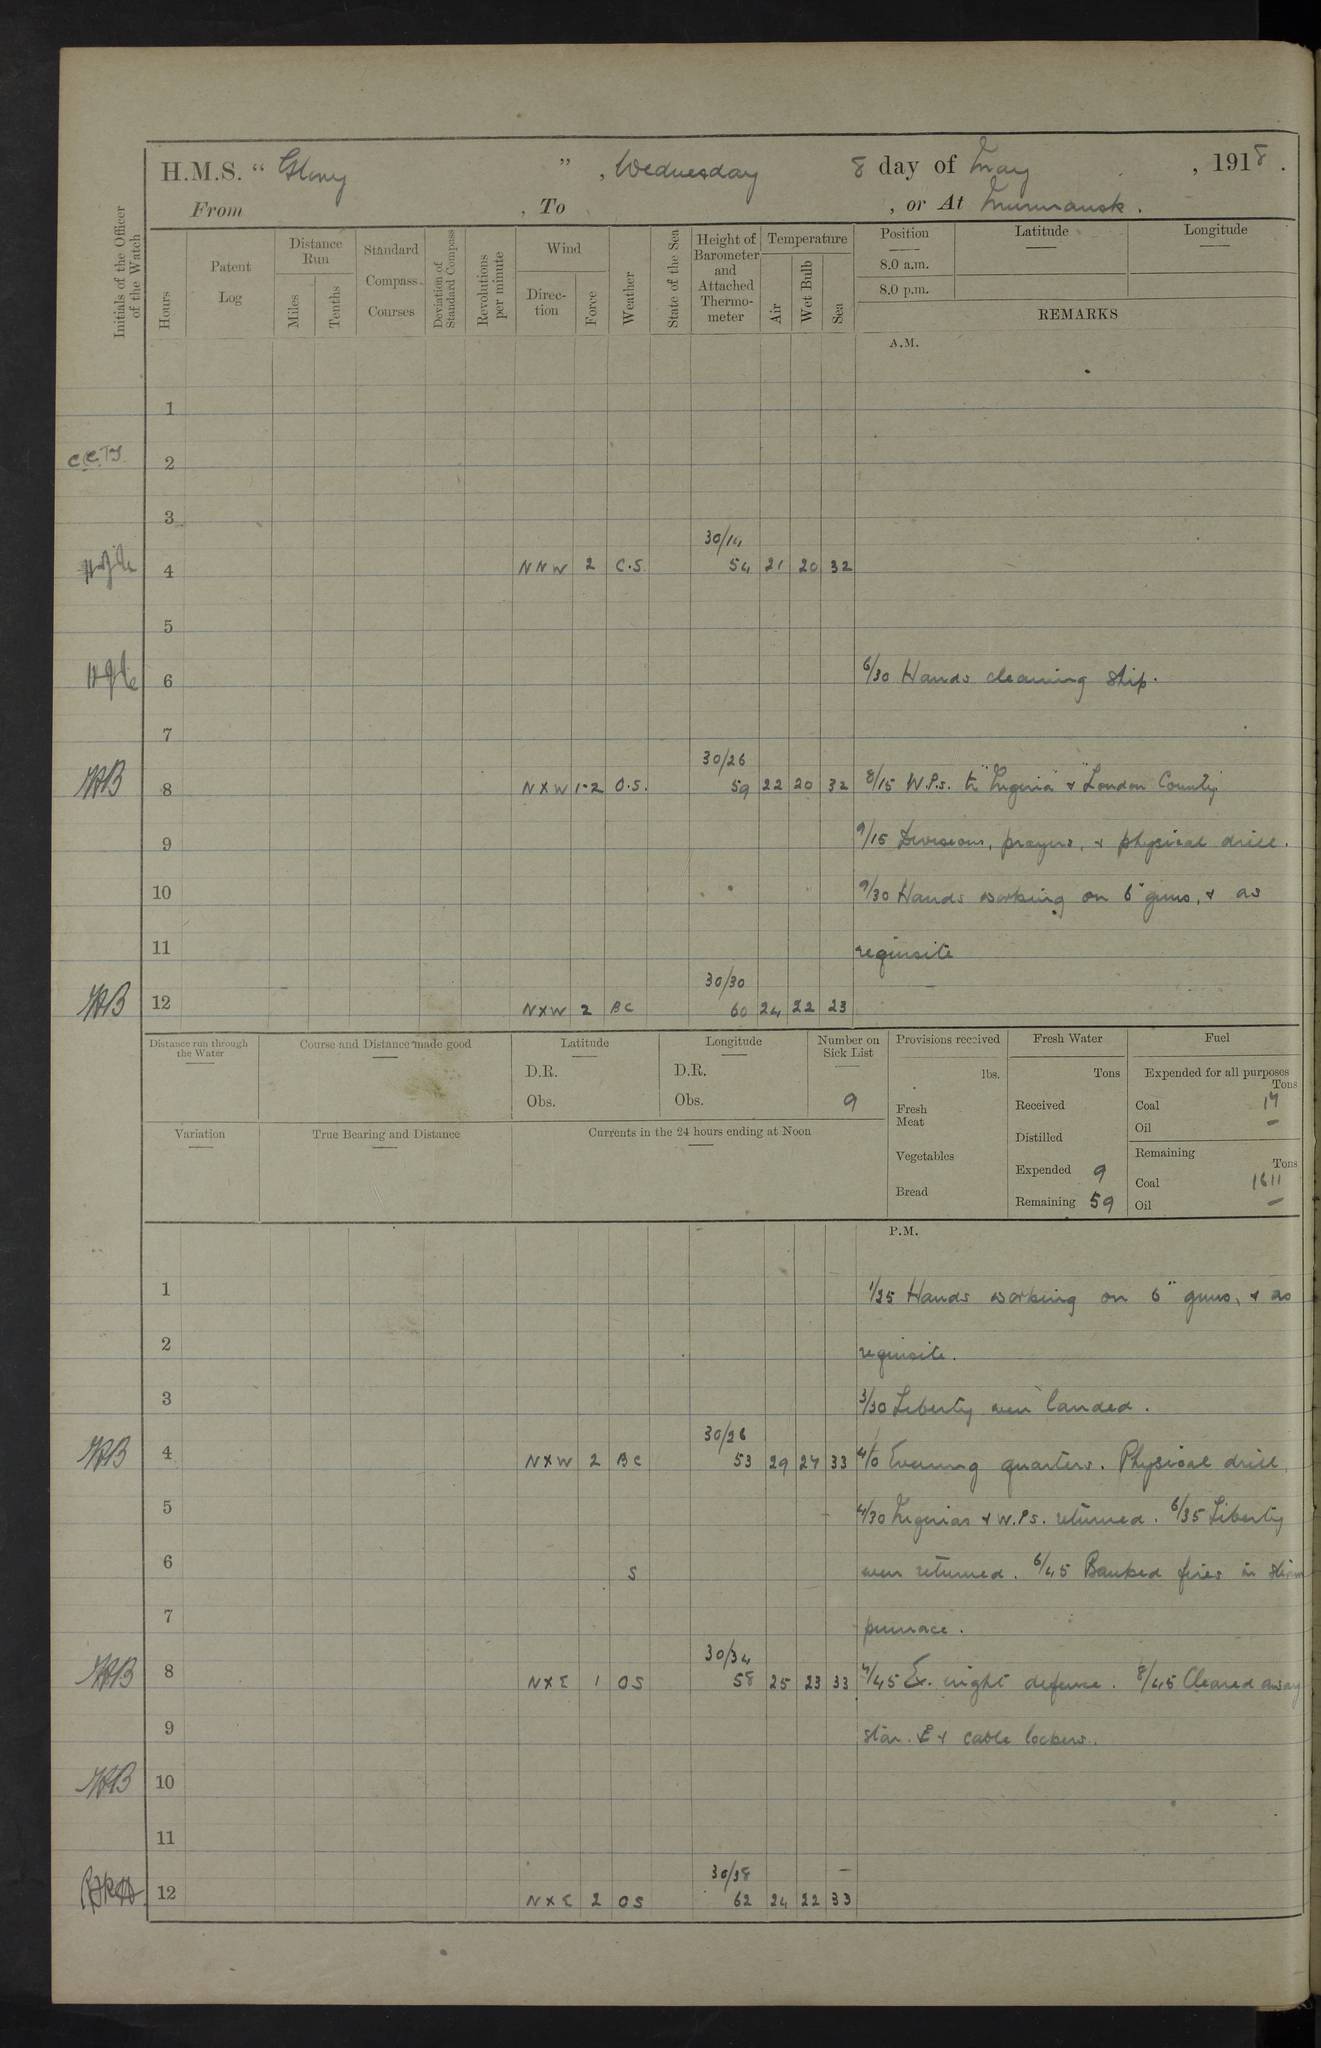 H.M.S. “ Glory ”, Wednesday 8 day of May , 1918.
From , To , or At Murmansk.
Initials of the Officer of the Watch
Hours
Patent Log
Distance Run
Miles
Tenths
Standard Compass Courses
Deviation of Standard Compass
Revolutions per minute
Wind
Direc-tion
Force
Weather
State of the Sea
Height of Barometer and Attached Thermo-meter
Temperature
Air
Wet Bulb
Sea
Position
8.0 a.m.
8.0 p.m.
Latitude
Longitude
REMARKS
A.M.
1
2
3
30/14
4 NNW 2 C.S. 54 21 20 32
5
6 6/30 Hands cleaning ship.
7
30/26
8 NXW 1-2 O.S. 59 22 20 32 8/15 W.P.s. to & "London County"
9 9/15 Divisions, prayers, & physical drill.
10 9/30 Hands working on 6" guns, & as
11 requisite
30/30
12 NXW 2 BC 60 24 22 23
Distance run through the Water
Course and Distance made good
Latitude
D.R.
Obs.
Longitude
D.R.
Obs.
Number on Sick List
9
Provisions received
lbs.
Fresh Meat
Vegetables
Bread
Fresh Water
Tons
Received
Distilled
Expended 9
Remaining 59
Fuel
Expended for all purposes
Tons
Coal 17
Oil –
Remaining
Tons
Coal 1611
Oil –
Variation
True Bearing and Distance
Currents in the 24 hours ending at Noon
P.M.
1 Hands working on 6" guns, & as
2 requisite.
3 3/30 Liberty men landed.
30/26
4 NXW 2 BC 53 29 27 33 4/0 Evening quarters. Physical drill.
5 4/30 & W.P.s. returned. 6/35 Liberty
6 S men returned. 6/45 Banked fires in steam
7 pinnace.
30/34
8 NXE 1 OS 58 25 23 33 7/45 Ex. night defence. 8/45 Cleared away
9 & cable lockers.
10
11
30/38 –
12 NXE 2 OS 62 24 22 33